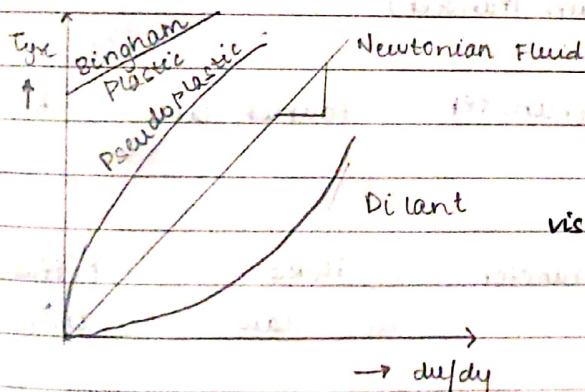 τyx
↑
Bingham
Plastic
Pseudoplastic
Newtonian Fluid
Dilant
vis
→ du/dy